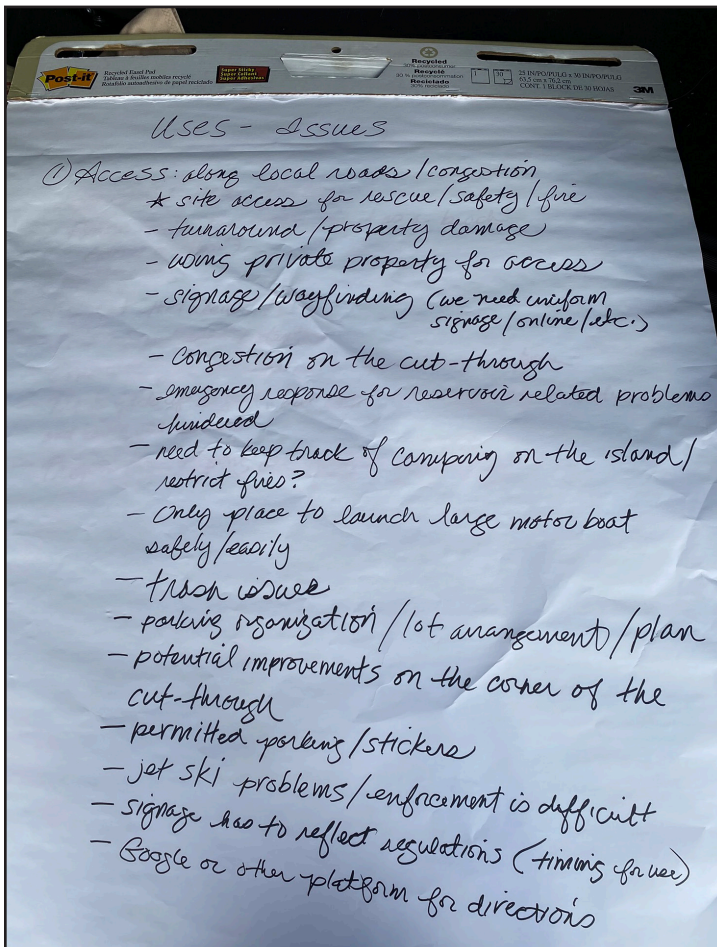 Post-it
Recycled Easel Pad
Tableau à feuilles mobiles recyclé
Rotafolio autoadhesivo de papel reciclado
Super Sticky
Super Collant
Super Adhesivas
Recycled
30% postconsumer
Recyclé
30 % postconsommation
Reciclado
30% reciclado
1
30
25 IN/PO/PULG x 30 IN/PO/PULG
63,5 cm x 76,2 cm
CONT. 1 BLOCK DE 30 HOJAS
3M
Uses - Issues
① Access: along local roads/congestion
* site access for rescue/safety/fire
- turnaround/property damage
- using private property for access
- signage/wayfinding (we need uniform
signage/online/etc.)
- congestion on the cut-through
- emergency response for reservoir related problems
hindered
- need to keep track of camping on the island/
restrict fires?
- Only place to launch large motor boat
safely/easily
- trash issues
- parking organization/lot arrangement/plan
- potential improvements on the corner of the
cut-through
- permitted parking/stickers
- jet ski problems/enforcement is difficult
- signage has to reflect regulations (timing for use)
- Google or other platform for directions